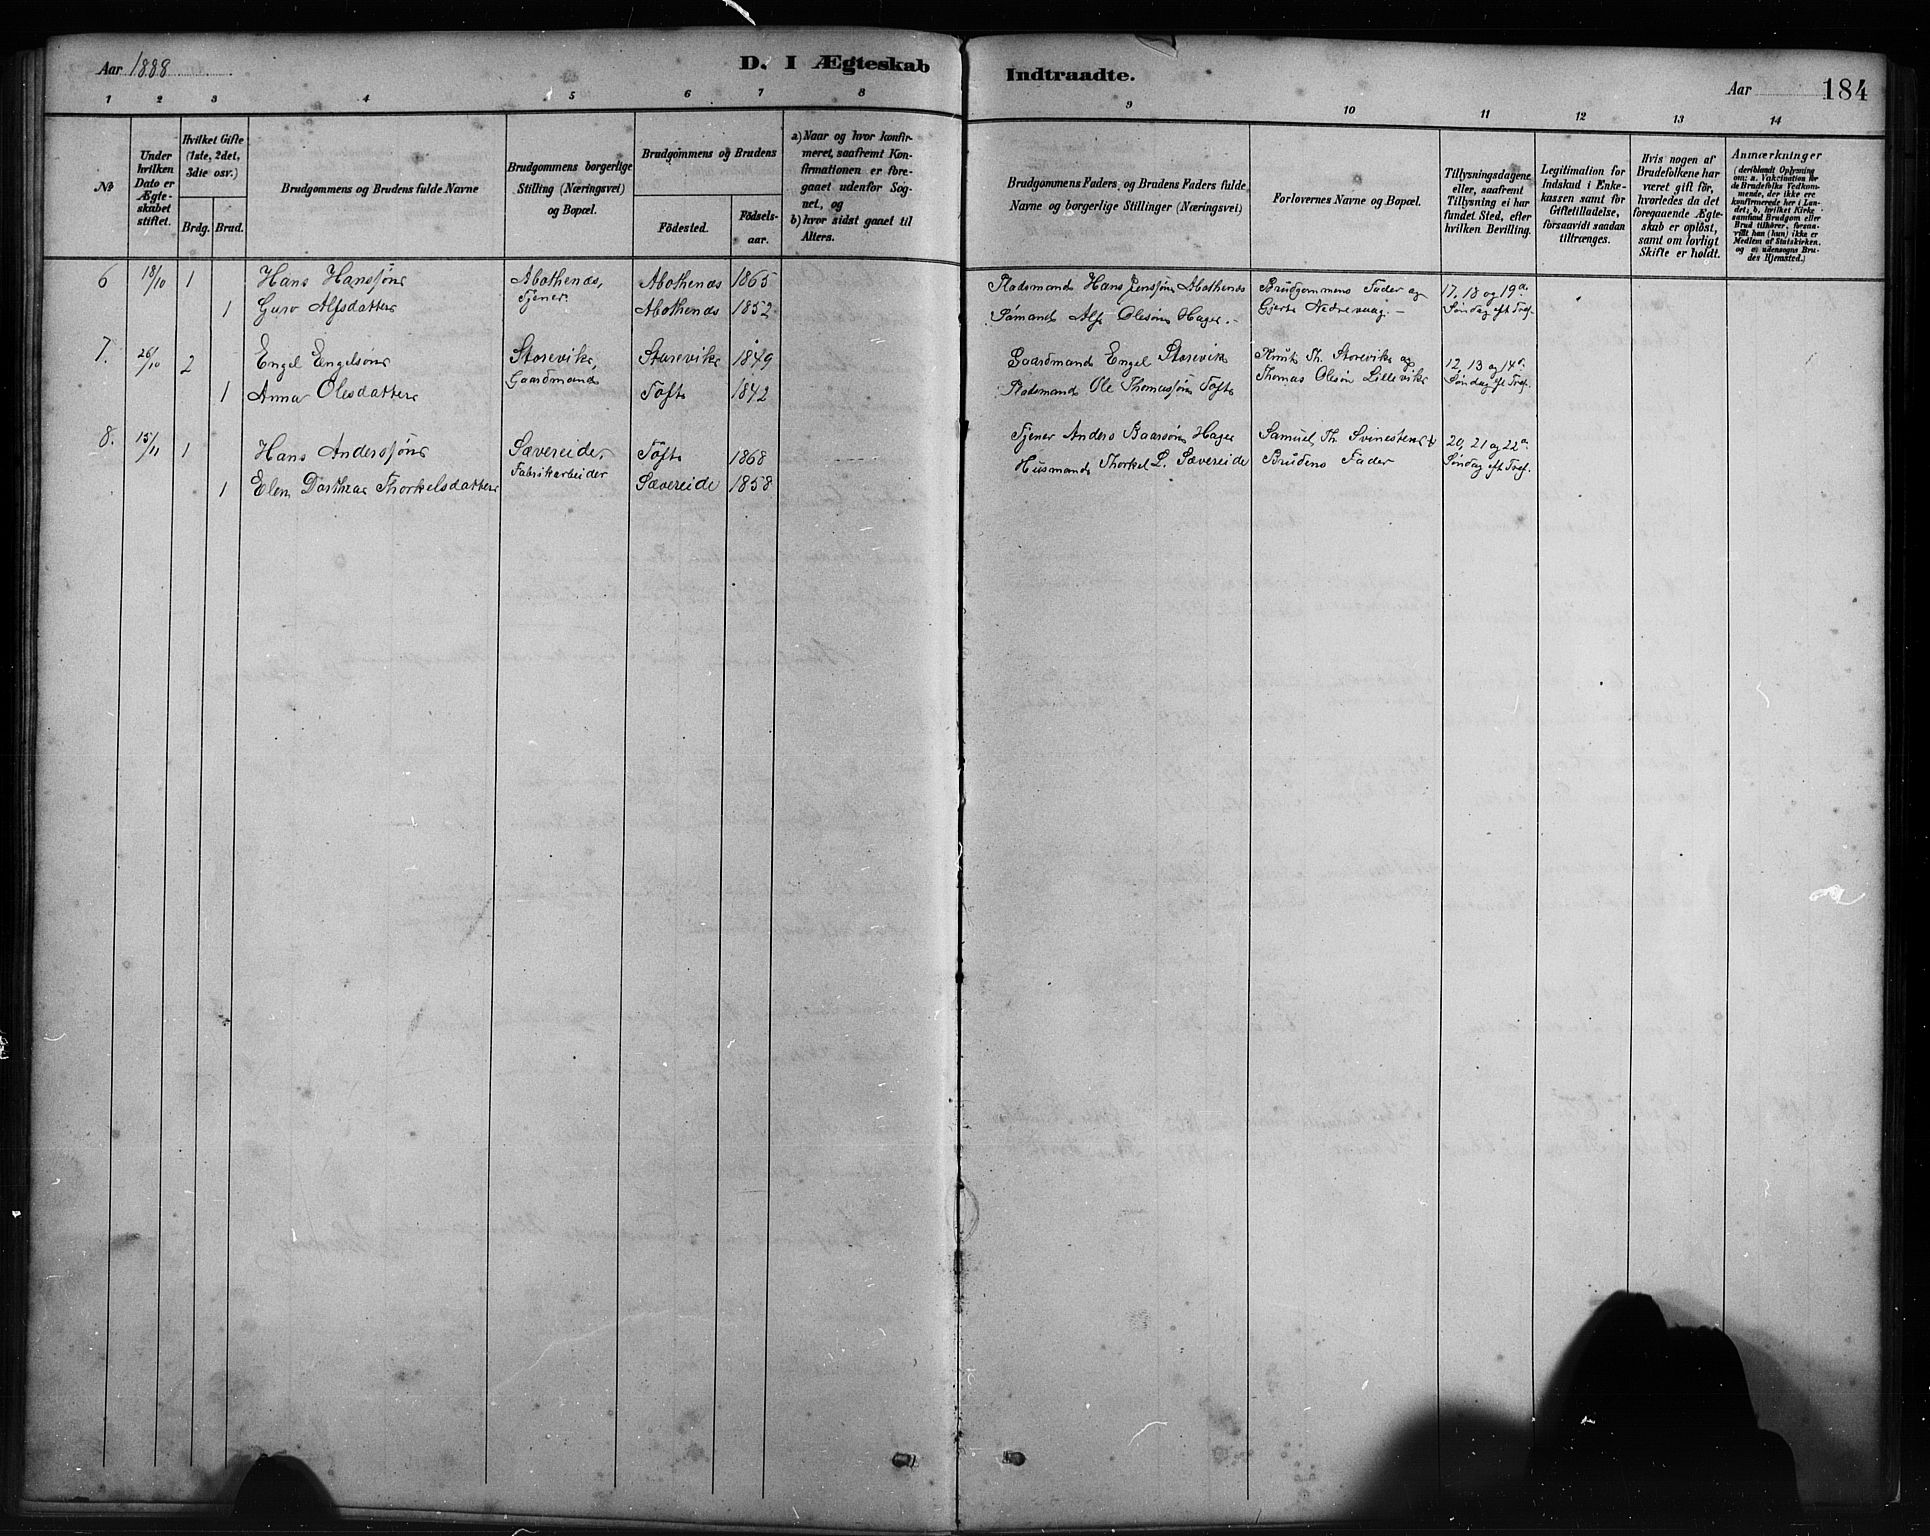 Aar 1888
D. I Ægteskab
Indtraadte.
Aar
184
1 2 3 4 5 6 7 8 9 10 11 12 13 14
№
Under hvilken Dato er Ægteskabet stiftet.
Hvilket Gifte (1ste, 2det, 3die osv.)
Brdg. Brud.
Brudgommens og Brudens fulde Navne
Brudgommens borgerlige Stilling (Næringsvei) og Bopæl.
Brudgommens og Brudens
Födested.
Födselsaar.
a) Naar og hvor konfirmeret, saafremt Konfirmationen er foregaaet udenfor Sognet, og
b) hvor sidst gaaet til Alters.
Brudgommens Faders, og Brudens Faders fulde Navne og borgerlige Stillinger (Næringsvei)
Forlovernes Navne og Bopæl.
Tillysningsdagene eller, saafremt Tillysning ei har fundet Sted, efter hvilken Bevilling.
Legitimation for Indskud i Enkekassen samt för Giftetilladelse, forsaavidt saadan tiltrænges.
Hvis nogen af Brudefolkene har været gift för, hvorledes da det foregaaende Ægteskab er oplöst, samt om lovligt Skifte er holdt.
Anmærkninger (deriblandt Oplysning om: a. Vakcination for de Brudefolks Vedkommende, der ikke ere konfirmerede her i Landet; b. hvilket Kirkesamfund Brudgom eller Brud tilhörer, forsaavidt han (hun) ikke er Medlem af Statskirken, og c. udensogns Brudes Hjemsted.)
6 18/10 1 Hans Hanssøn Abothenes, Abothenes 1865 Pladsmand Hans Jenssøn Abothenes Brudgommens Fader og 17, 18 og 19de
1 Guro Alfsdatter Tjener. Abothenes 1852 Sømand Alf Olesøn Hage. - Gjert Nedrevaag. - Søndag eft Tref.
7. 26/10 2 Engel Engelsøn Storevik, Storevik 1849 Gaardmand Engel Storevik Knut Th. Storevik og 12, 13 og 14de
1 Anna Olesdatter Gaardmand Toft 1842 Pladsmand Ole Thomassøn Toft Thomas Olesøn Lillevik Søndag eft Tref.
8. 15/11 1 Hans Anderssøn Sævereide, Toft 1868 Tjener Anders Baarsøn Hage Samuel Th. Svinesten & 20, 21 og 22de
1 Elen Dorthea Thorkelsdatter Fabrikarbeider Sævereide 1858 Husmand Thorkel L. Sævereide Brudens Fader Søndag eft Tref.